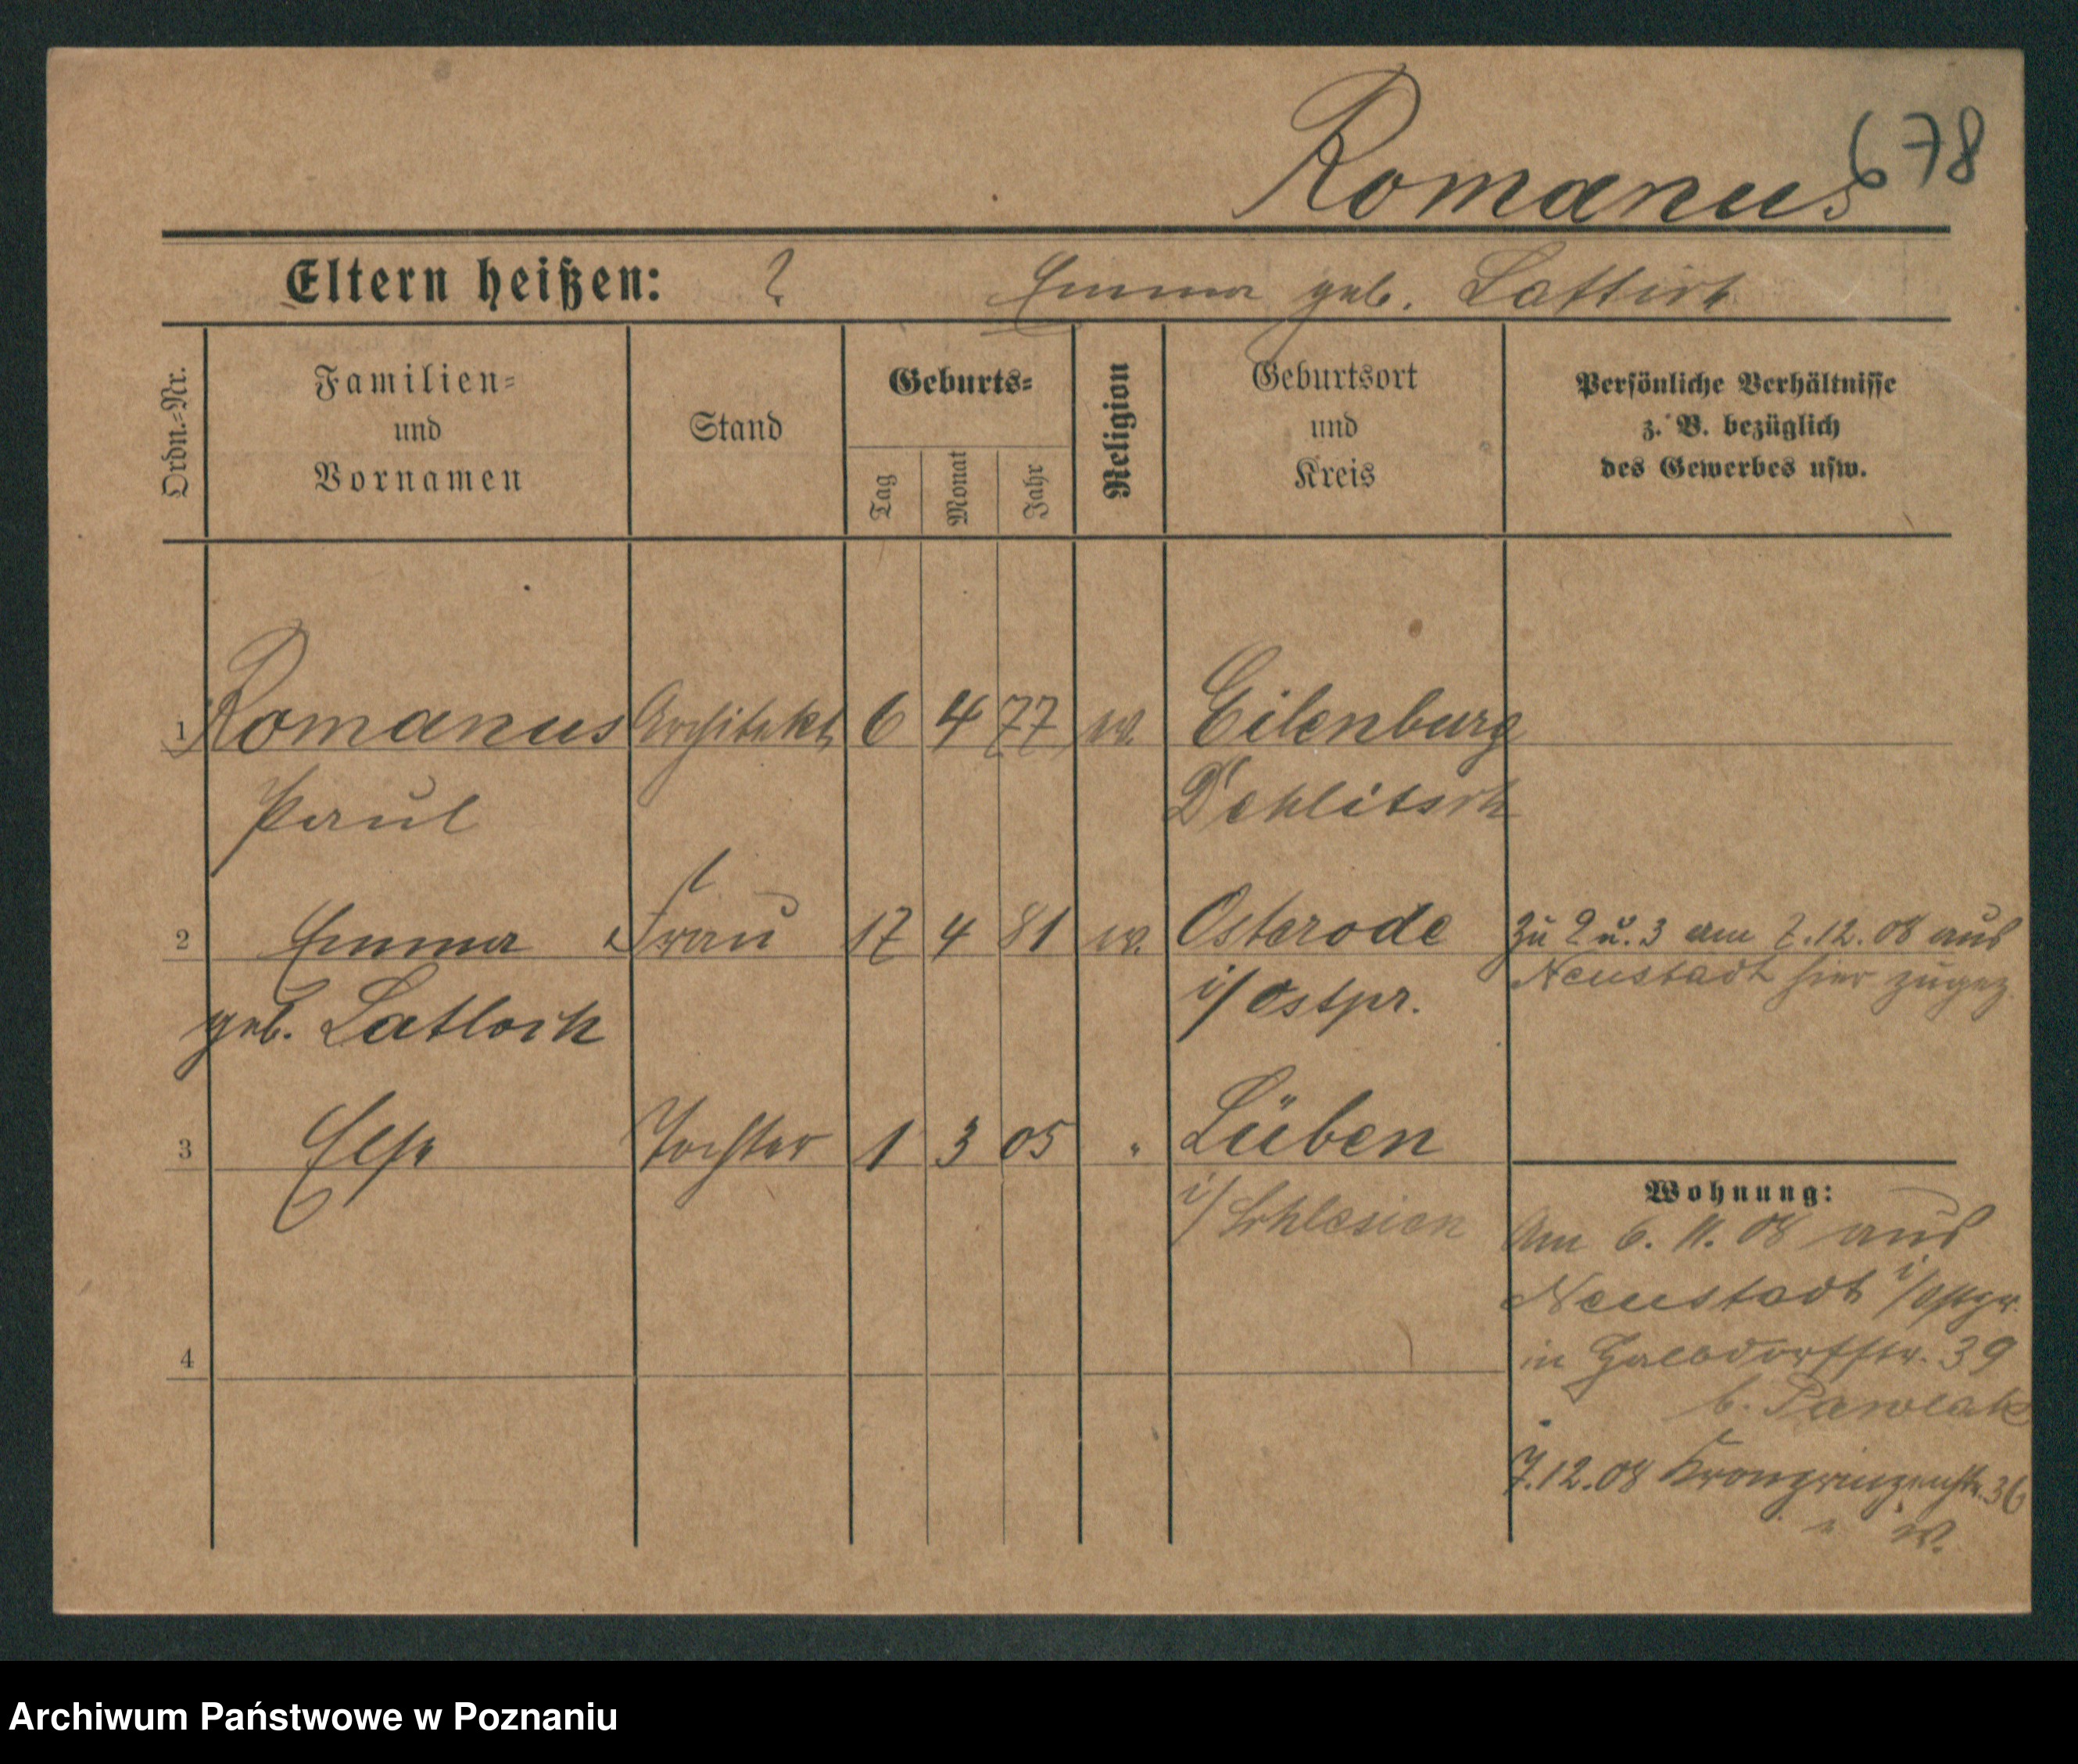 678
Romanus
Eltern heißen: ? Emma geb.
Ordn.=Nr.
Familien=
und
Vornamen
Stand
Geburts=
Tag
Monat
Jahr
Religion
Geburtsort
und
Kreis
Persönliche Verhältnisse
z. B. bezüglich
des Gewerbes usw.
1 Romanus Architekt 6 4 77 ev. Eilenburg
Paul Dehlitsch
2 Emma Frau 17 4 81 ev. Osterode Zu 2 u. 3 am 7.12.08 aus
Neustadt hier zugez.
geb. Latloch i/Ostpr.
3 Else Tochter 1 3 05 " Lüben
i/Schlesien
Wohnung:
Am 6. 11. 08 aus
Neustadt
4
in 39
b. Pawlak
7.12.08 Kronprinzenstr. 36
Archiwum Państwowe w Poznaniu